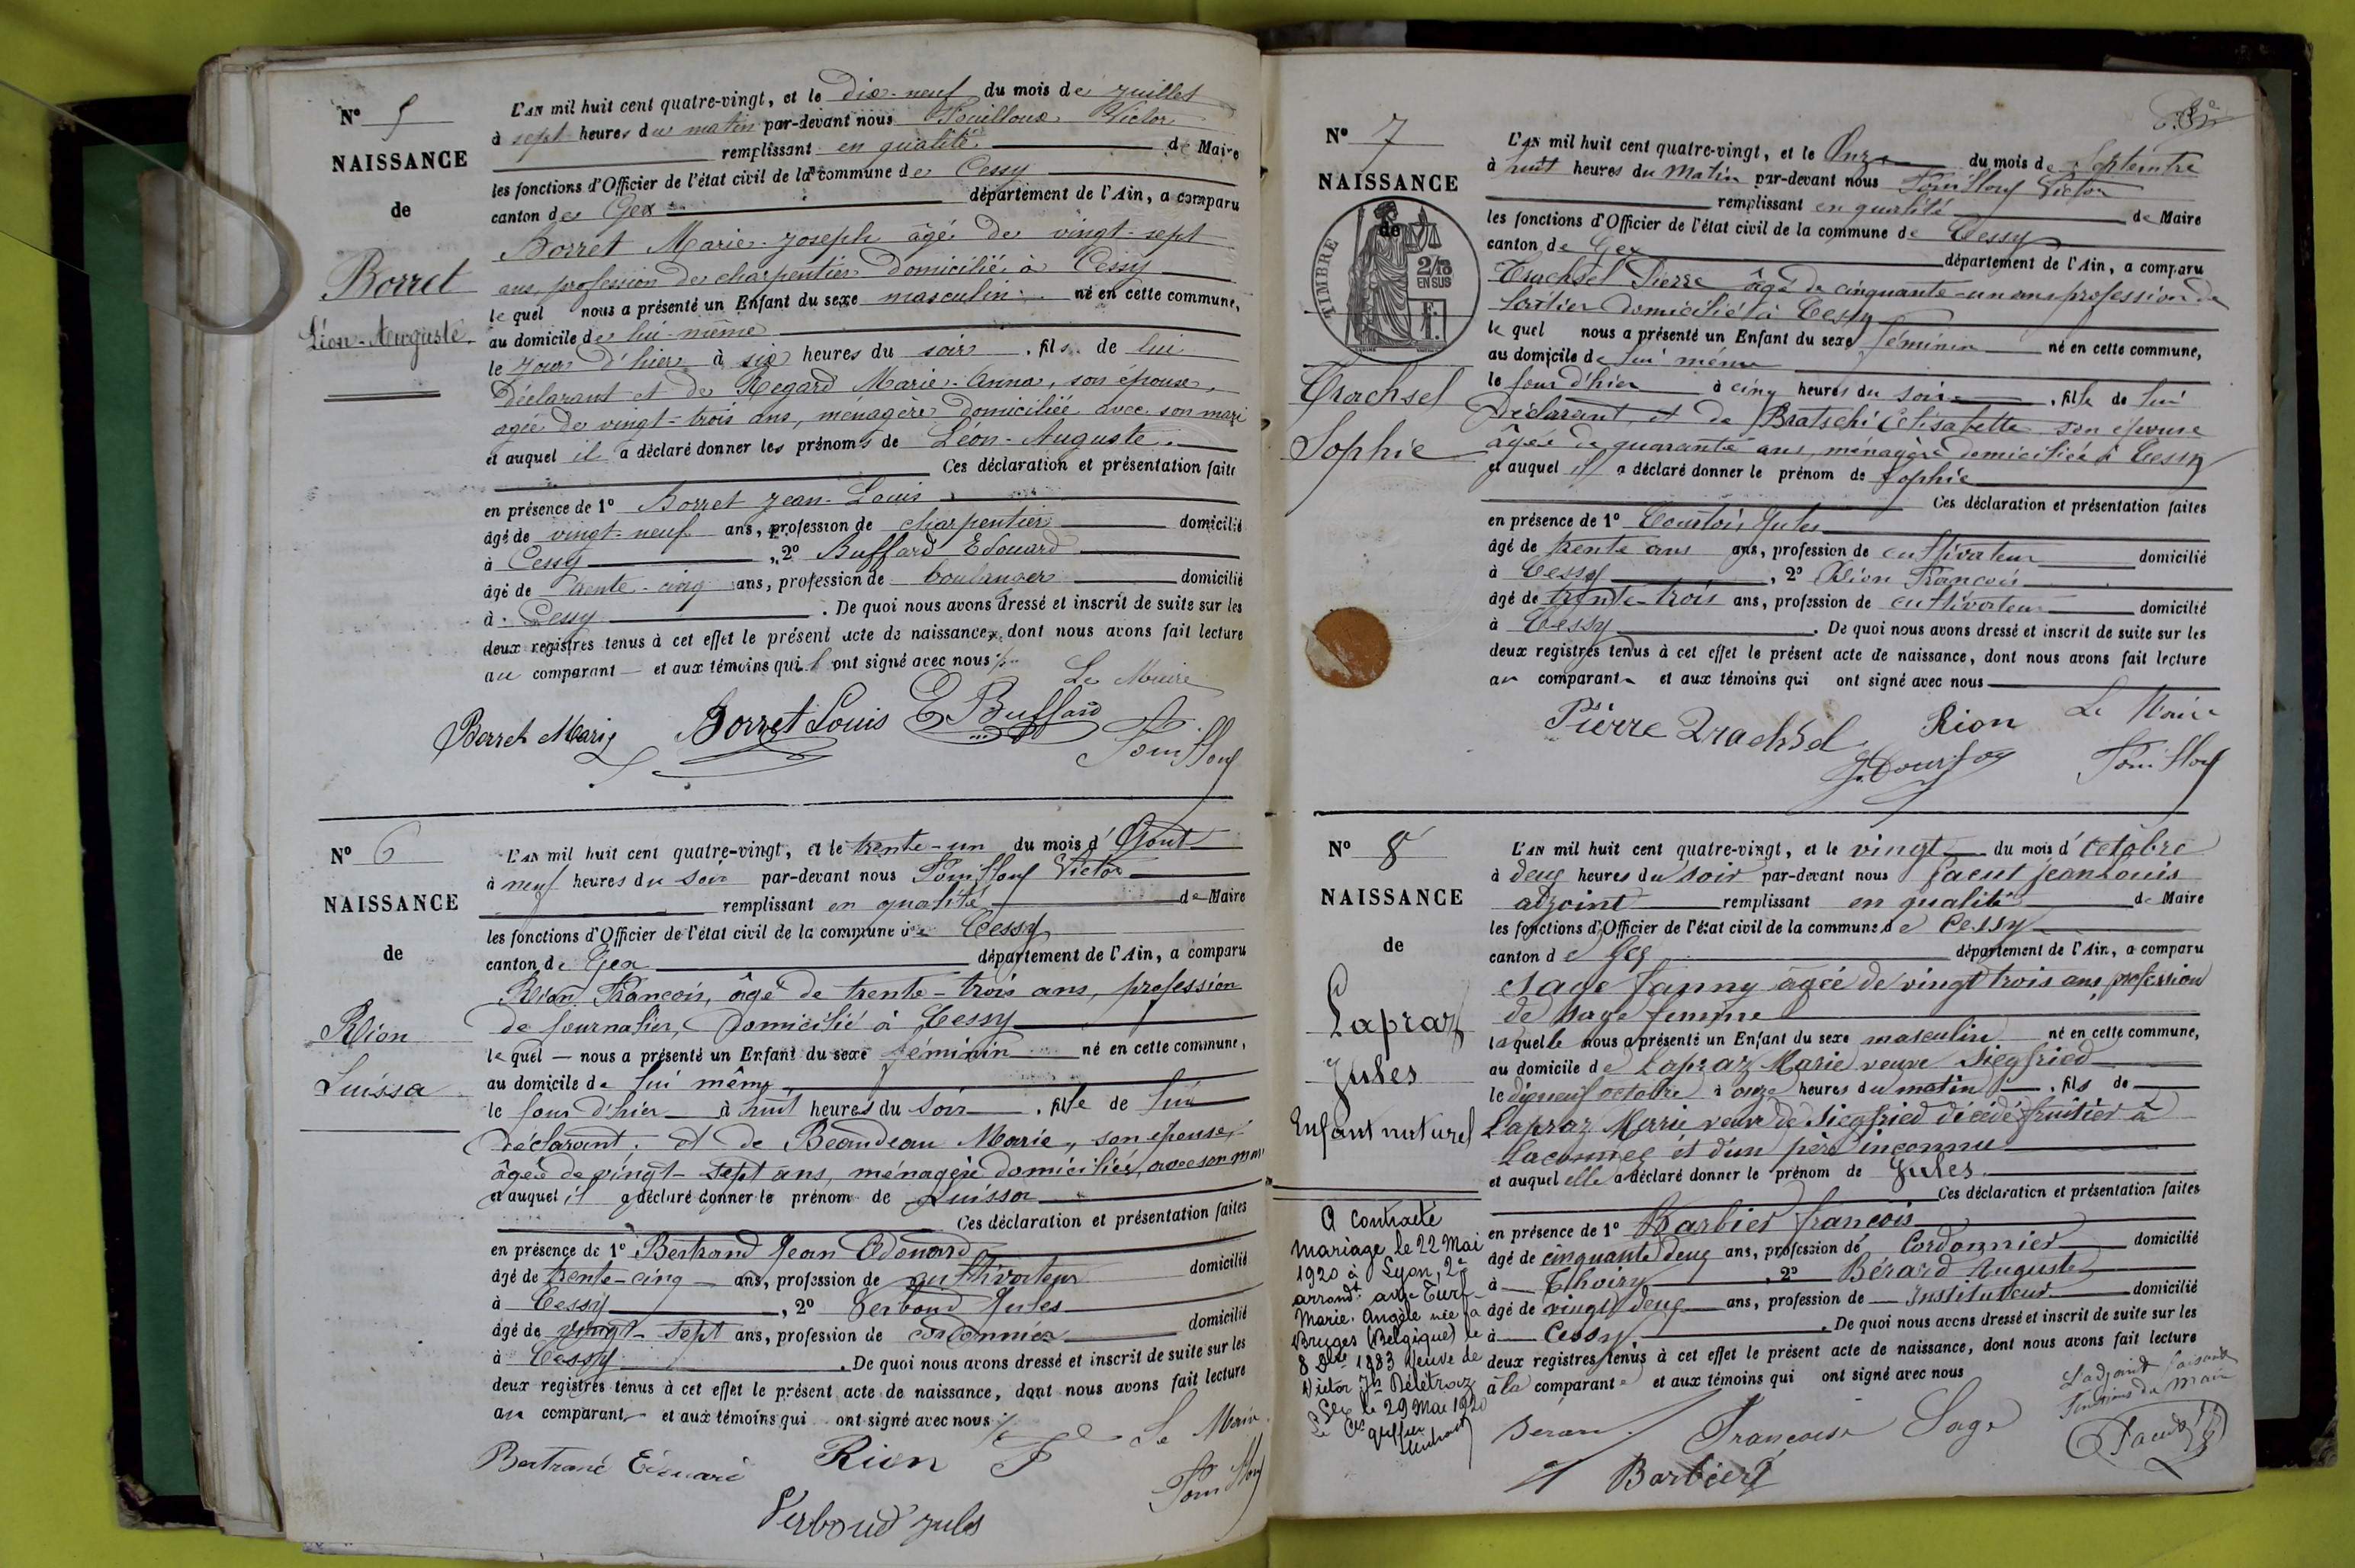 N° 5
NAISSANCE
de
Borret
Léon-Auguste
L'AN mil huit cent quatre-vingt, et le dix-neuf du mois de juillet
à sept heures du matin par-devant nous Pouilloux Victor
remplissant en qualité de Maire
les fonctions d'Officier de l'état civil de la commune de Cessy
canton de Gex département de l'Ain, a comparu
Borret Marie-Joseph âgé de vingt-sept
ans, profession de charpentier domicilié à Cessy
lequel nous a présenté un Enfant du sexe masculin né en cette commune,
au domicile de lui-même
le jour d'hier à six heures du soir. fils de lui
Déclarant et de Regard Marie-Anna, son épouse,
agée de vingt-trois ans, ménagère domiciliée avec son mari
et auquel il a déclaré donner les prénoms de Léon-Auguste.
Ces déclaration et présentation faites
en présence de 1° Borret Jean-Louis
âgé de vingt-neuf ans, profession de charpentier domicilié
à Cessy, 2° Buffard Edouard
âgé de trente-cinq ans, profession de boulanger domicilié
à Cessy. De quoi nous avons dressé et inscrit de suite sur les
deux registres tenus à cet effet le présent acte de naissance, dont nous avons fait lecture
au comparant et aux témoins qui ont signé avec nous
Le Maire
Borret Marie Borret Louis E Buffard
Pouilloux
N° 6
NAISSANCE
de
Rion
Luissa
L'AN mil huit cent quatre-vingt, et le trente-un du mois d'Aout
à neuf heures du soir par-devant nous Pouilloux Victor
remplissant en qualité de Maire
les fonctions d'Officier de l'état civil de la commune de Cessy
canton de Gex département de l'Ain, a comparu
Rion François, âgé de trente-trois ans, profession
de journalier, domicilié à Cessy
lequel nous a présenté un Enfant du sexe féminin né en cette commune,
au domicile de lui même
le jour d'hier à huit heures du soir. fille de lui
déclarant, et de Beaudeau Marie, son épouse,
âgée de vingt-sept ans, ménagère domiciliée, avec son mari
et auquel il a déclaré donner le prénom de Luissa
Ces déclaration et présentation faites
en présence de 1° Bertrand Jean Edouard
âgé de trente-cinq ans, profession de cultivateur domicilié
à Cessy, 2° Verboud Jules
âgé de vingt-sept ans, profession de cordonnier domicilié
à Cessy. De quoi nous avons dressé et inscrit de suite sur les
deux registres tenus à cet effet le présent acte de naissance, dont nous avons fait lecture
au comparant et aux témoins qui ont signé avec nous
Le Maire
Bertrand Edouard Rion F
Pouilloux
Verboud Jules
N° 7
NAISSANCE
de
TIMBRE
2/10
EN SUS
F.
Trachsel
Sophie
L'AN mil huit cent quatre-vingt, et le Onze du mois de Septembre
à huit heures du Matin par-devant nous Pouilloux Victor
remplissant en qualité de Maire
les fonctions d'Officier de l'état civil de la commune de Cessy
canton de Gex département de l'Ain, a comparu
Trachsel Pierre âgé de cinquante-un ans profession de
laitier domicilié à Cessy
lequel nous a présenté un Enfant du sexe féminin né en cette commune,
au domicile de lui même
le jour d'hier à cinq heures du soir. fille de lui
déclarant, et de Bratschi Elisabette son épouse
âgée de quarante ans, ménagère domiciliée à Cessy
et auquel il a déclaré donner le prénom de Sophie
Ces déclaration et présentation faites
en présence de 1° Courtois Jules
âgé de trente ans ans, profession de cultivateur domicilié
à Cessy, 2° Rion François
âgé de trente-trois ans, profession de cultivateur domicilié
à Cessy. De quoi nous avons dressé et inscrit de suite sur les
deux registres tenus à cet effet le présent acte de naissance, dont nous avons fait lecture
au comparant et aux témoins qui ont signé avec nous
Pierre Trachsel Rion Le Maire
Pouilloux
N° 8
NAISSANCE
de
Lapraz
Jules
Enfant naturel
L'AN mil huit cent quatre-vingt, et le vingt du mois d'octobre
à deux heures du soir par-devant nous Jacut Jean Louis
adjoint remplissant en qualité de Maire
les fonctions d'Officier de l'état civil de la commune de Cessy
canton de Gex département de l'Ain, a comparu
Sage Fanny âgée de vingt trois ans, profession
de sage femme
laquelle nous a présenté un Enfant du sexe masculin né en cette commune,
au domicile de Lapraz Marie veuve Siegfried
le dizneuf octobre à onze heures du matin. fils de
Lapraz Marie veuve de Siegfried décédé fruitier à
et d'un père inconnu
et auquel elle a déclaré donner le prénom de Jules
Ces déclaration et présentation faites
en présence de 1° Barbier françois
âgé de cinquante deux ans, profession de Cordonnier domicilié
à Thoiry, 2° Bérard Auguste
âgé de vingt deux ans, profession de Instituteur domicilié
à Cessy. De quoi nous avons dressé et inscrit de suite sur les
deux registres tenus à cet effet le présent acte de naissance, dont nous avons fait lecture
à la comparante et aux témoins qui ont signé avec nous
L'adjoint faisant
fonctions de Maire
Bérard Françoise Sage
Barbier
A contracté
mariage le 22 Mai
1920 à Lyon, 2e
arrondt. avec Turf
Marie-Angèle née à
Bruges (Belgique) le
8 1883 Veuve de
Victor Jh Délétraz
Gex le 29 Mai 1920
Le greffier